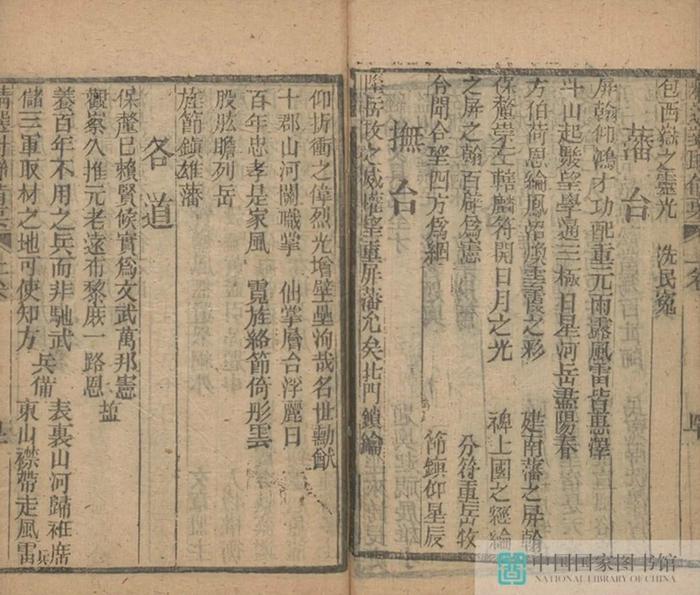 包西嶽之靈光　洗民寃
藩台
屏翰仰鴻才功配重元雨露風雷皆惠澤
斗山起駿望學通三極日星河岳盡陽春
方伯荷恩綸鳳藻煥雲霞之彩　建南藩之屏翰
保釐崇左轄麟符開日月之光　裨上國之經綸
之屏之翰百辟爲憲　分符重岳牧
令聞令望四方爲綱　節鎮仰星辰
撫台
隆岳牧之威權望重屏藩允矣北門鎖鑰
仰折衝之偉烈光增壁壘洵哉名世勳猷
十郡山河關職掌　仙掌層台浮麗日
百年忠孝是家風　霓旌絡節倚彤雲
股肱瞻列岳
旌節鎮雄藩
各道
保釐已賴賢候實爲文武萬邦憲
觀察久推元老遠布黎庶一路恩　鹽
養百年不用之兵而非馳武　表裏山河歸袵席
兵備
儲三軍取材之地可使知方　東山襟帶走風雷　兵
中国国家图书馆
NATIONAL LIBRARY OF CHINA